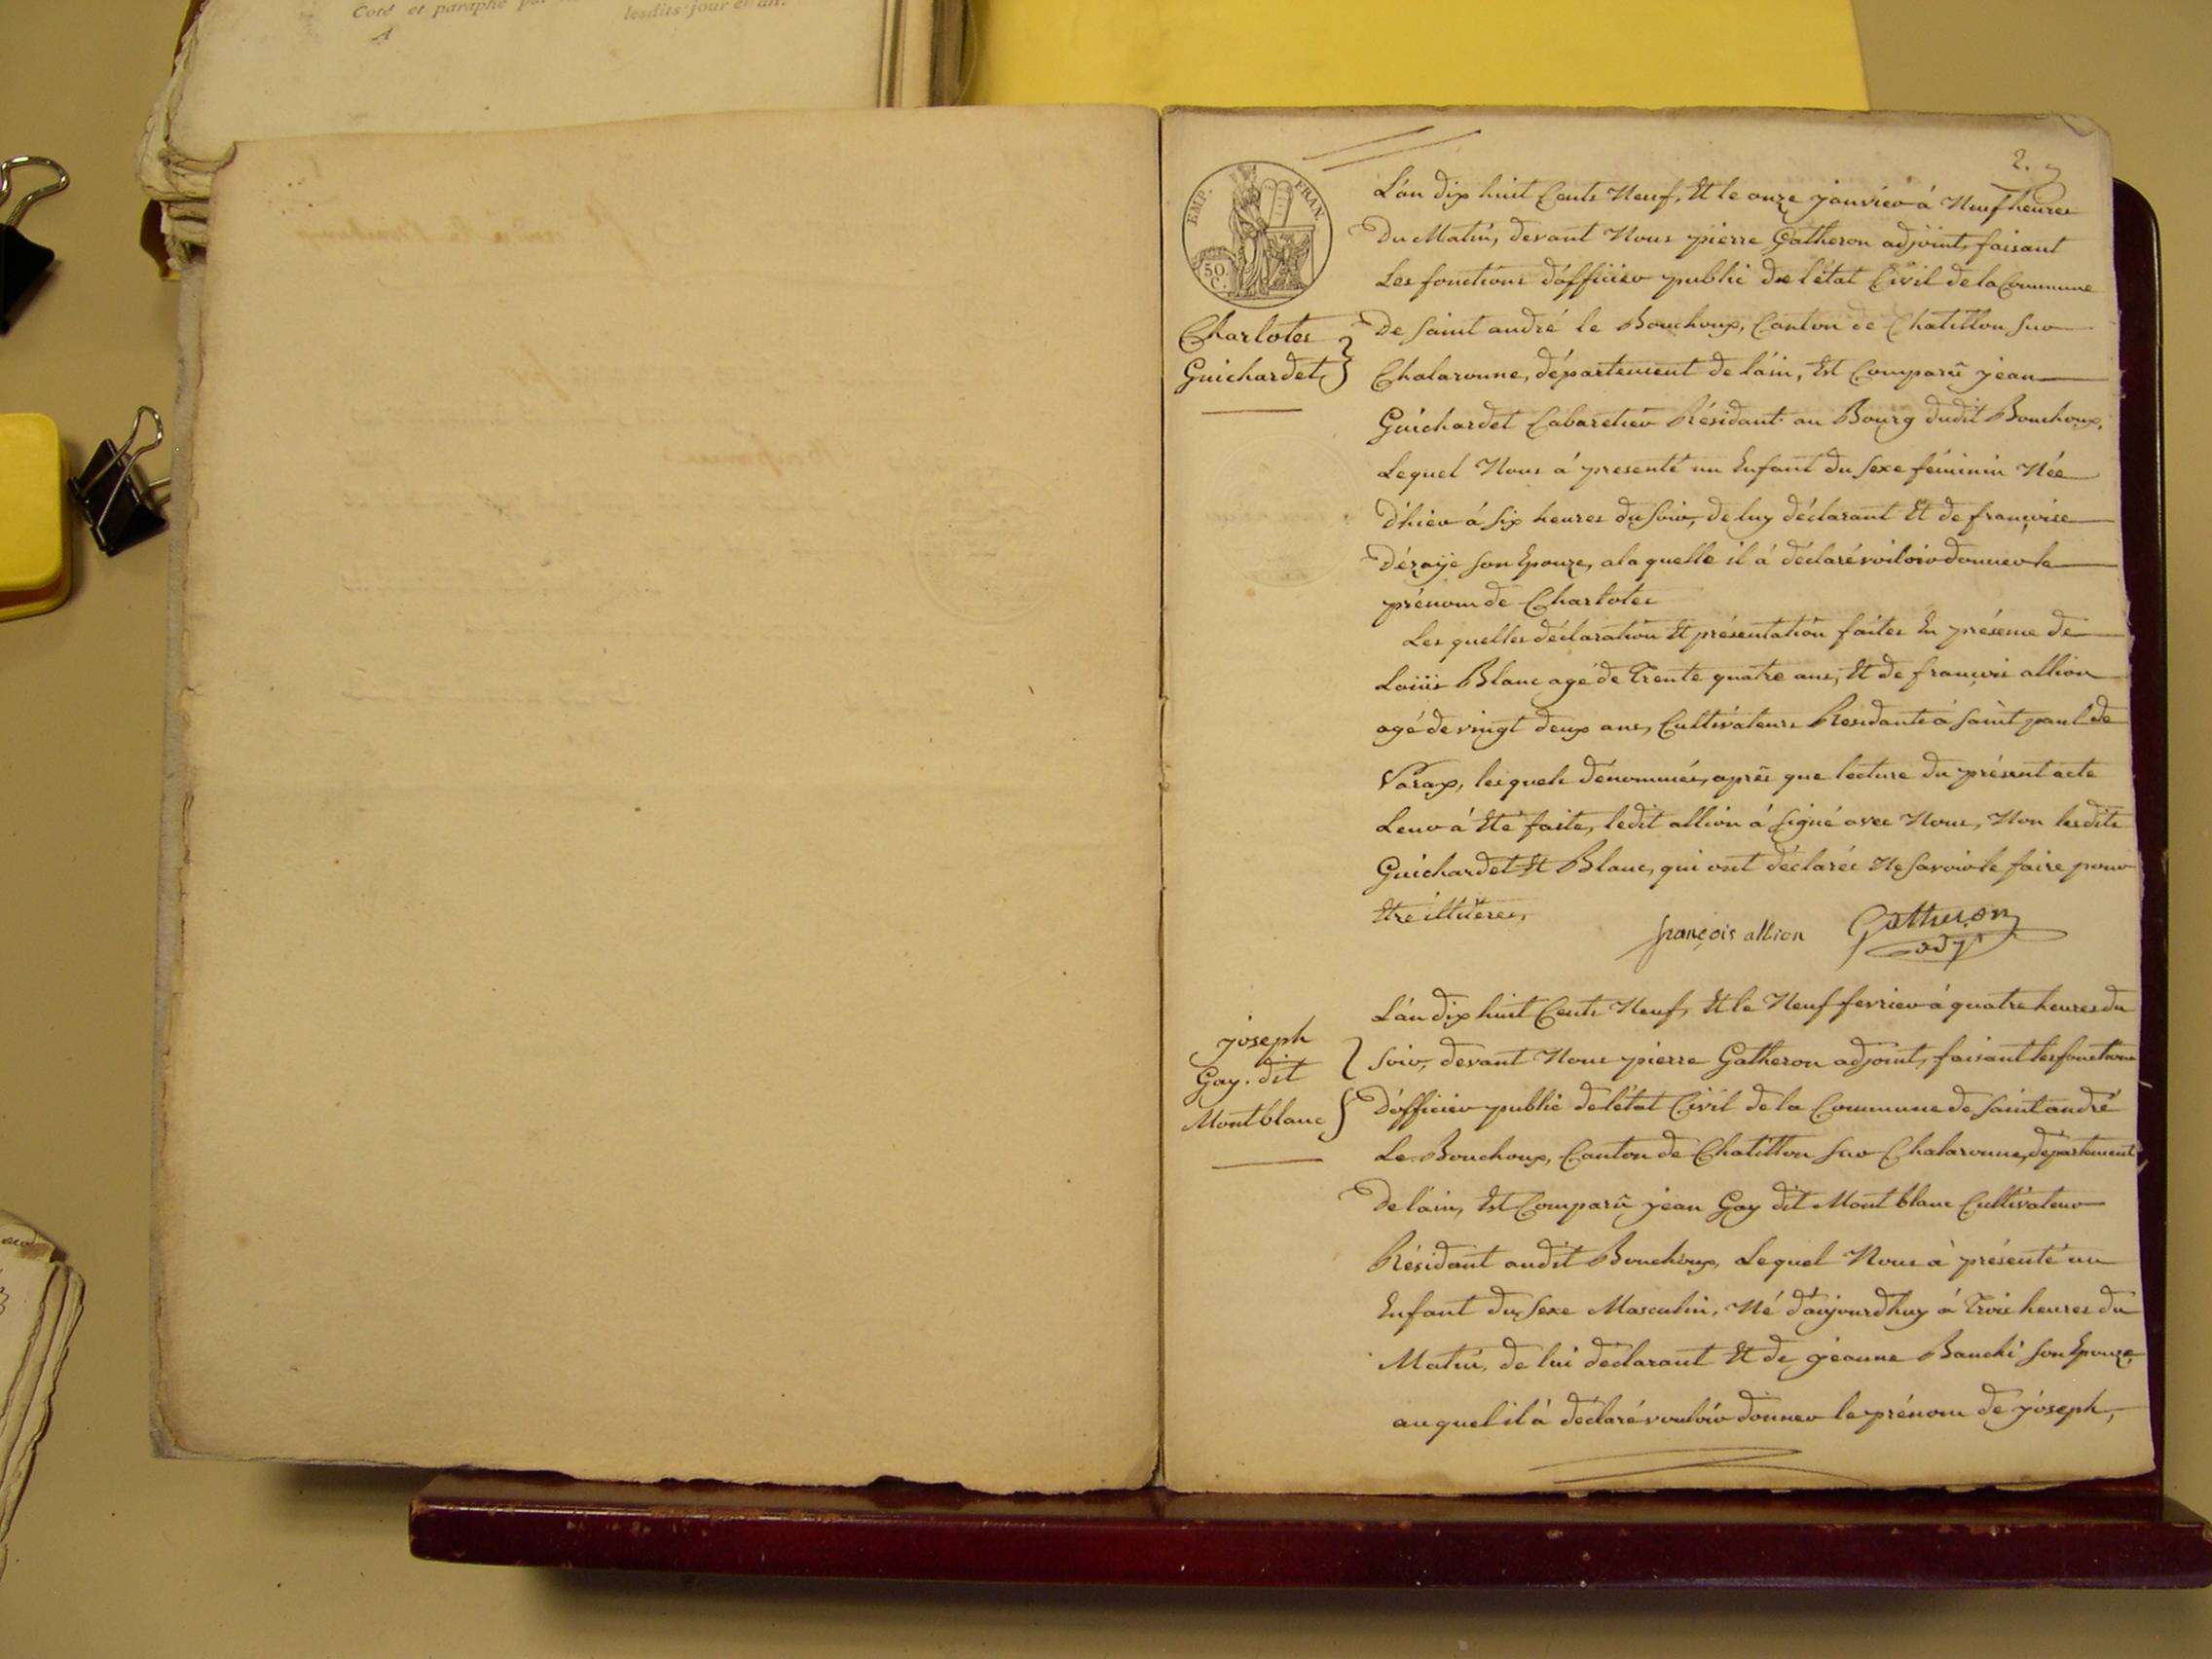 Coté et paraphé
lesdits jour et an.
2.
EMP. FRAN.
50.
C.
Charlotes
Guichardet
L'an dix huit Cents Neuf, Et le onze janvier á Neuf heures
Du Matin, devant Nous pierre Gatheron adjoint, faisant
Les fonctions d'officier public de l'état Civil de la Commune
De saint andré le Bouchoux, Canton de Chatillon sur
Chalaronne, département de l'áin, Est Comparû jean
Guichardet Cabaretier Résidant au Bourg dudit Bouchoux,
Lequel Nous á presenté un Enfant du sexe féminin Née
D'hier á six heures du soir, de luy déclarant Et de françoise
son Epouze, a la quelle il á déclaré voiloir donner le
prénom de Charlotes
Les quelles déclaration Et présentation faites En présence de
Loüis Blanc agé de Trente quatre ans, Et de françois allion
agé de vingt deux ans, Cultivateurs Residants á saint paul de
Varax, lesquels dénommés, aprés que lecture du présent acte
Leur á Eté faite, ledit allion á signé avec Nous, Non lesdits
Guichardet Et Blanc, qui ont déclarés Ne savoir le faire pour
Etre illiteres,
françois allion Gatheron
adjt
joseph
Gay. dit
Montblanc
L'án dix huit Cents Neuf, Et le Neuf fevrier á quatre heures du
soir, devant Nous pierre Gatheron adjoint, faisant les fonctions
D'officier public de l'état Civil de la Commune de saint andré
Le Bouchoux, Canton de Chatillon sur Chalaronne, département
De l'ain, Est Comparû jean Gay dit Montblanc Cultivateur
Résidant audit Bouchoux, Lequel Nous à présenté un
Enfant du sexe Masculin, Né d'aujourdhuy á Trois heures du
Matin, de lui déclarant Et de jeanne Bauchi son Epouze,
auquel il à déclaré vouloir donner le prénom de joseph,